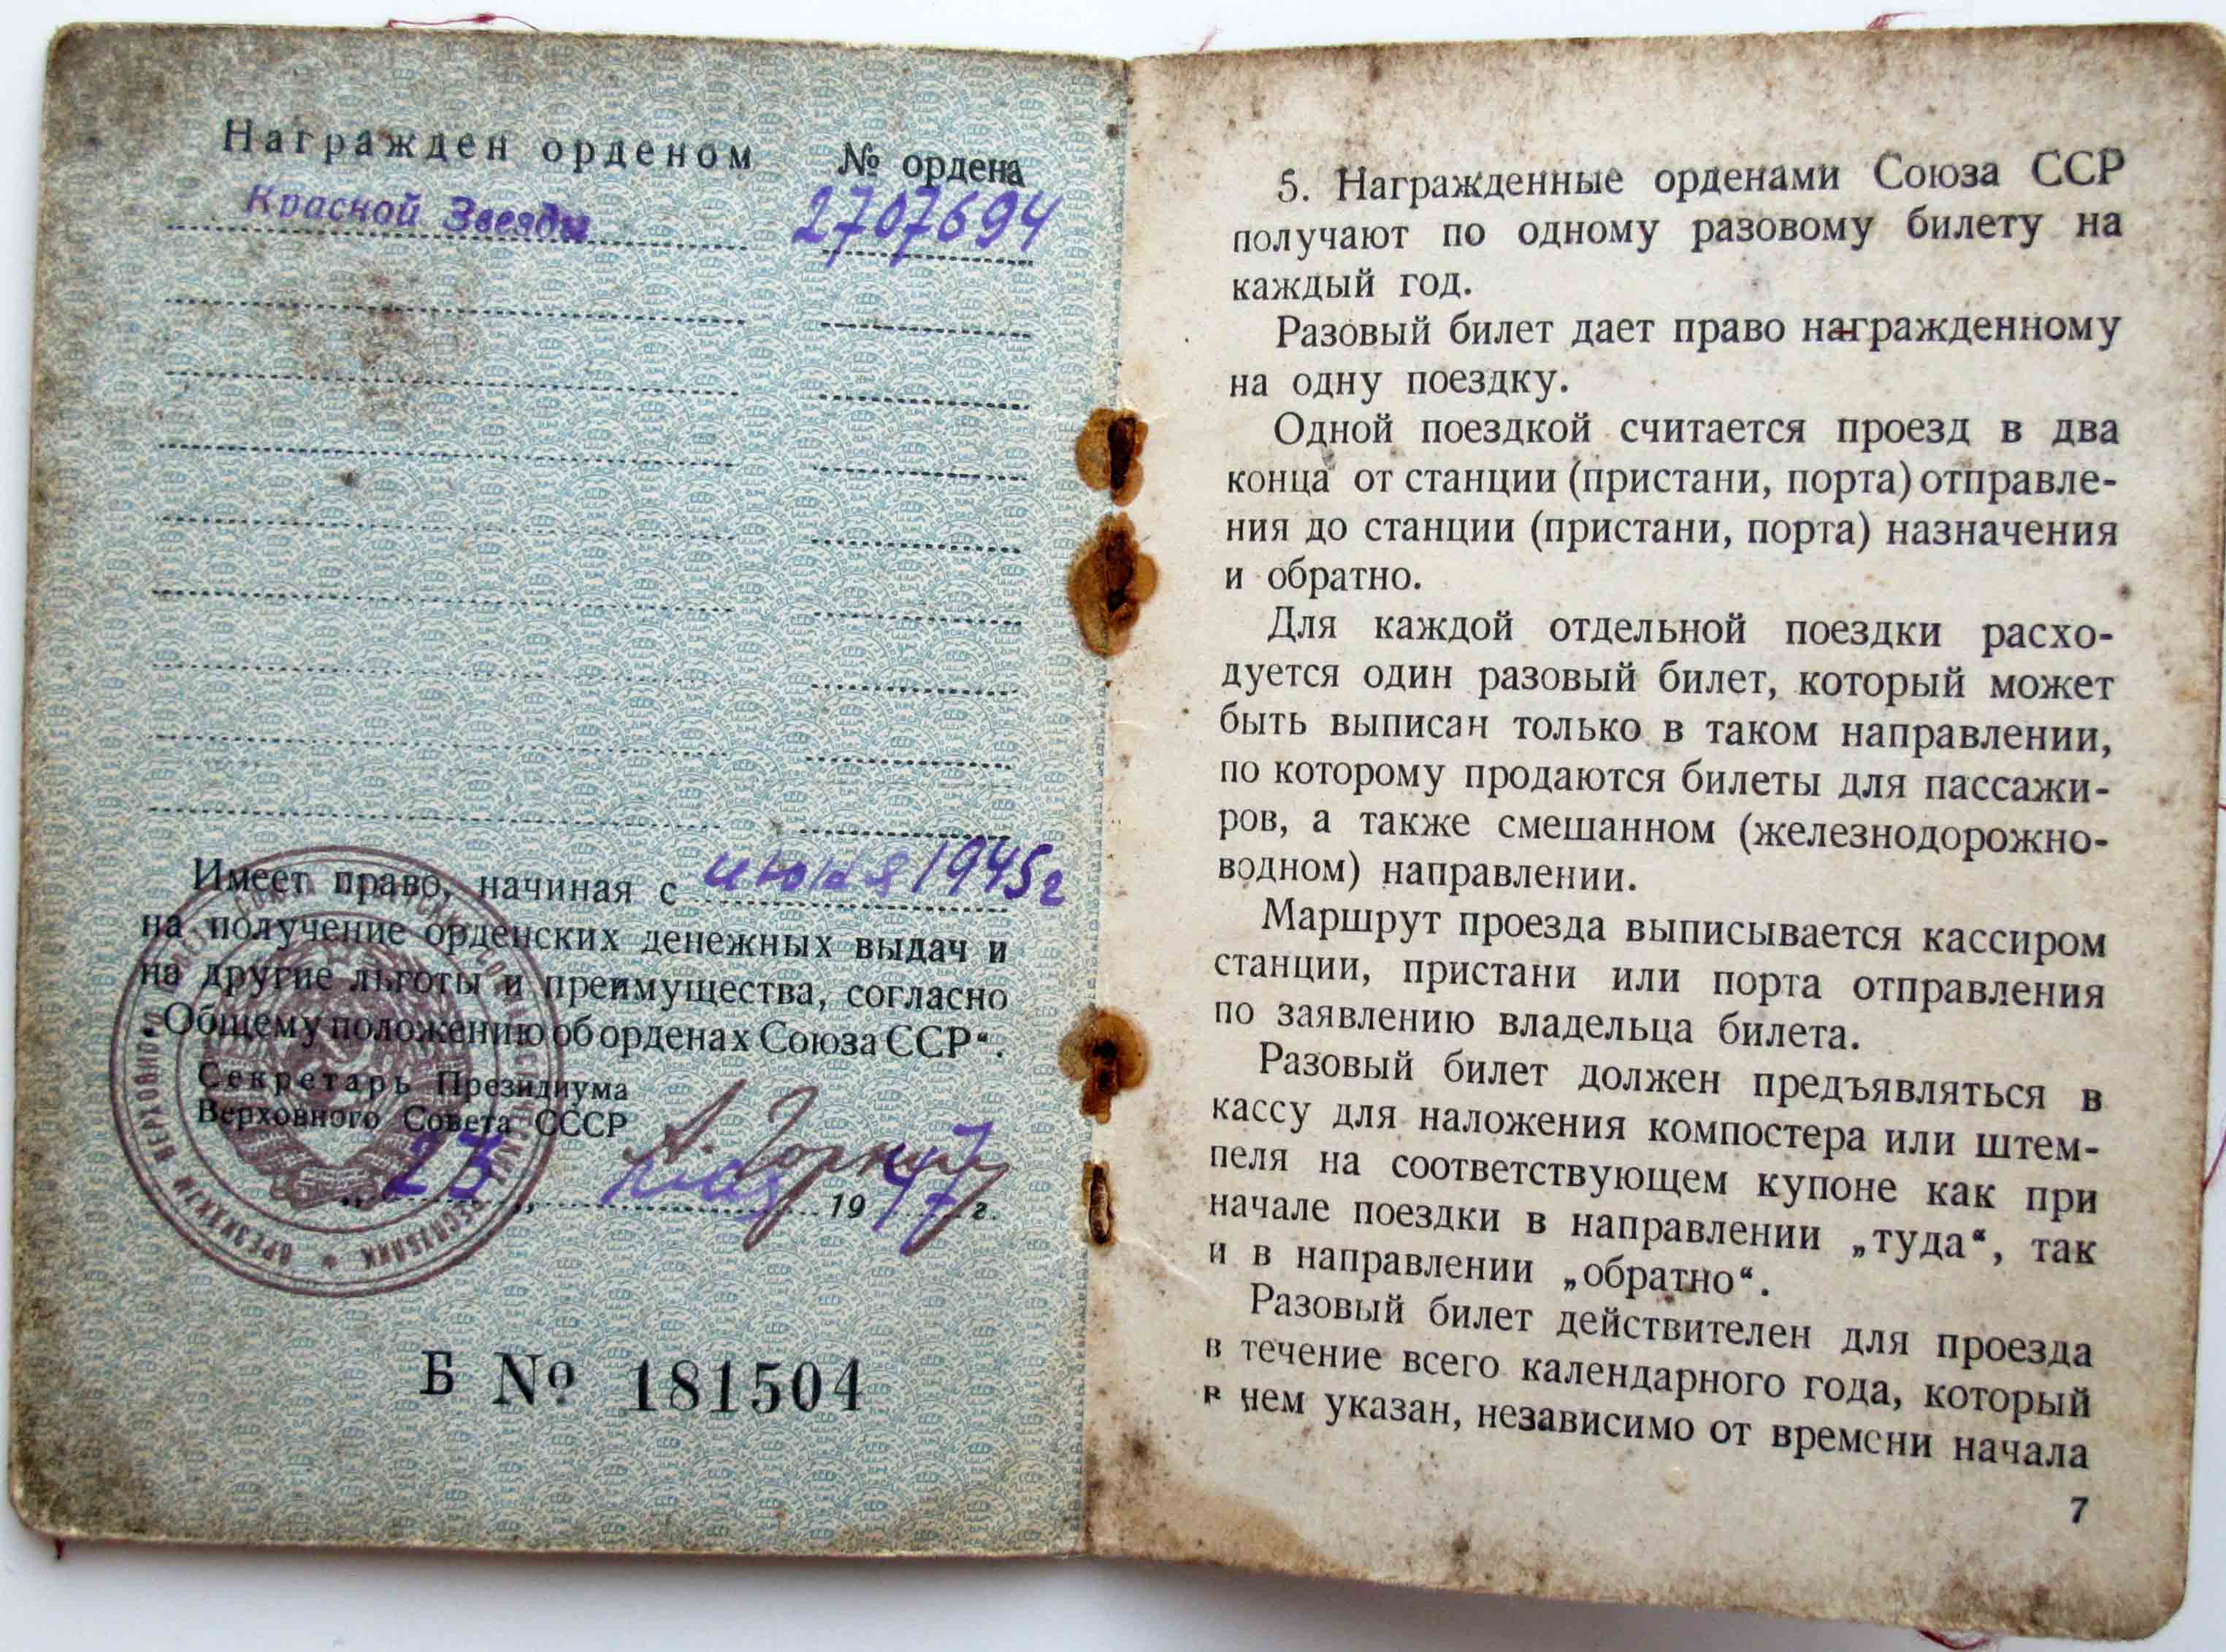 Награжден орденом № ордена
Красной Звезды 2707694
Имеет право, начиная с июня 1945 г
на получение орденских денежных выдач и
на другие льготы и преимущества, согласно
„Общему положению об орденах Союза ССР“.
Секретарь Президиума
Верховного Совета СССР
А. Горкин
„23„ мая 1947 г.
Б № 181504
5. Награжденные орденами Союза ССР
получают по одному разовому билету на
каждый год.
Разовый билет дает право награжденному
на одну поездку.
Одной поездкой считается проезд в два
конца от станции (пристани, порта) отправле-
ния до станции (пристани, порта) назначения
и обратно.
Для каждой отдельной поездки расхо-
дуется один разовый билет, который может
быть выписан только в таком направлении,
по которому продаются билеты для пассажи-
ров, а также смешанном (железнодорожно-
водном) направлении.
Маршрут проезда выписывается кассиром
станции, пристани или порта отправления
по заявлению владельца билета.
Разовый билет должен предъявляться в
кассу для наложения компостера или штем-
пеля на соответствующем купоне как при
начале поездки в направлении „туда“, так
и в направлении „обратно“.
Разовый билет действителен для проезда
в течение всего календарного года, который
в нем указан, независимо от времени начала
7